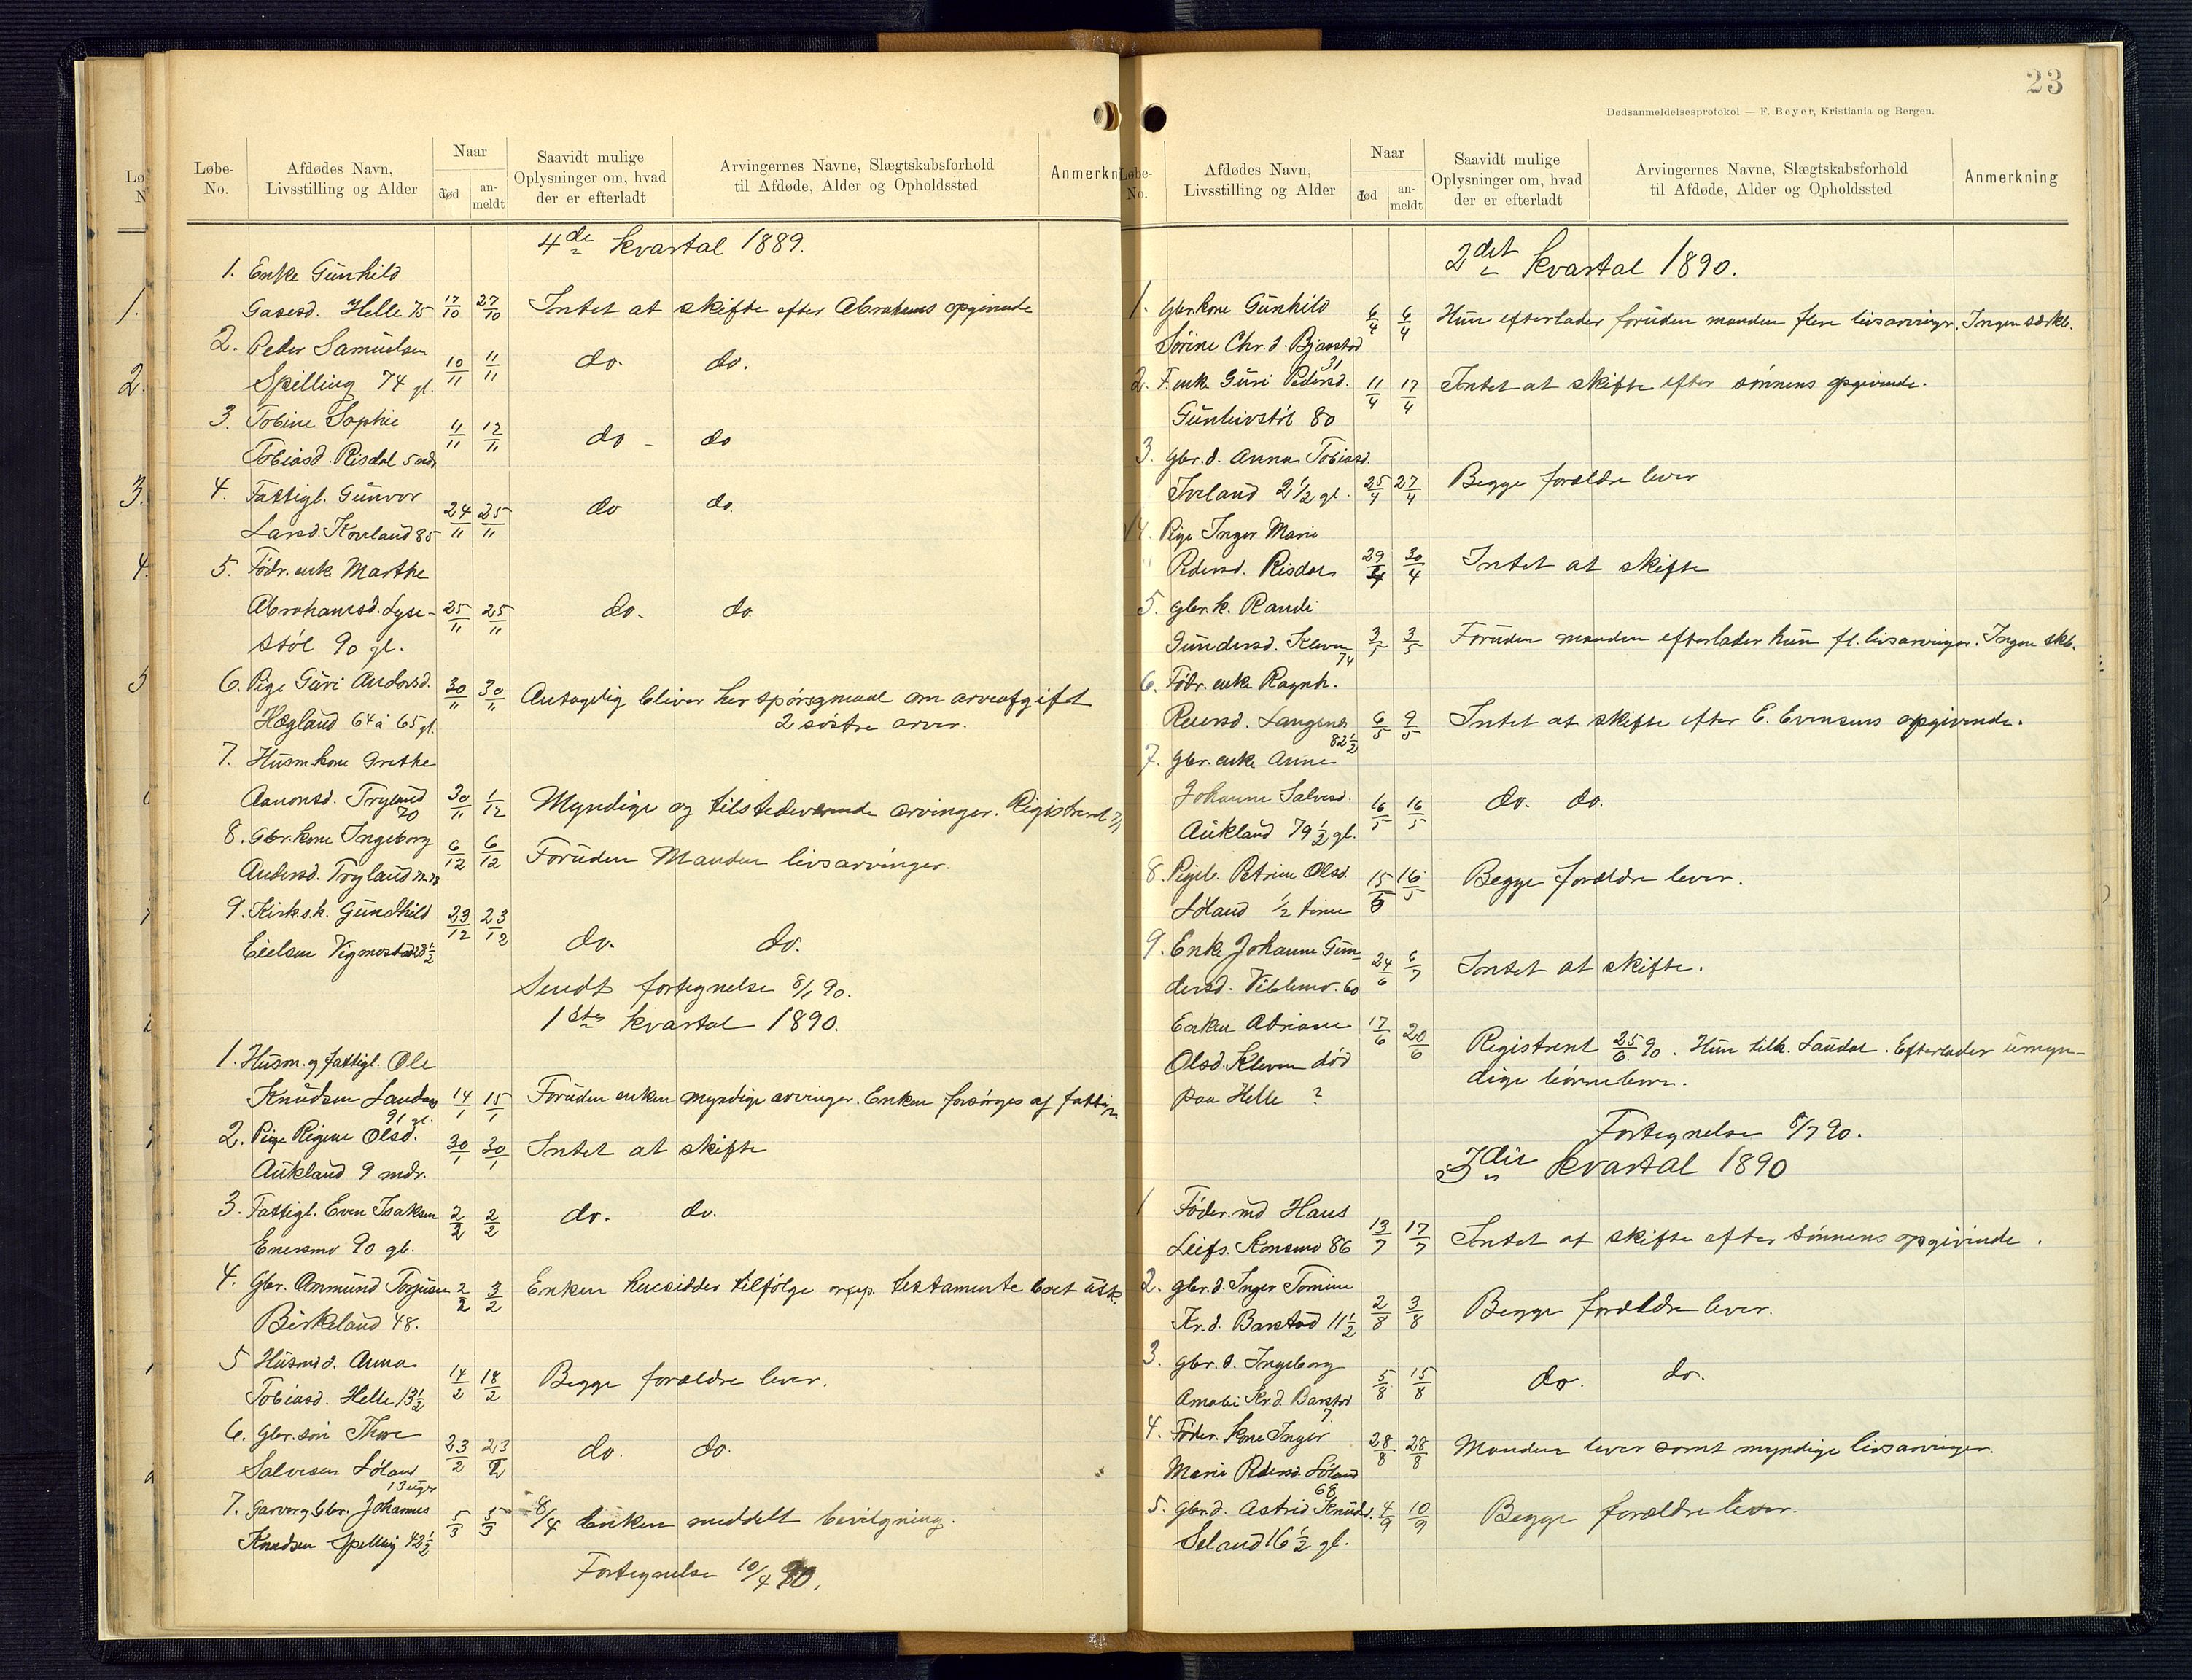 Løbe-
No.
Afdødes Navn,
Livsstilling og Alder
Naar
død
an-
meldt
Saavidt mulige
Oplysninger om, hvad
der er efterladt
Arvingernes Navne, Slægtskabsforhold
til Afdøde, Alder og Opholdssted
Anmerkn
4de kvartal 1889.
1. Enke Gunhild
Gasesd. Helle 75 17/10 27/10 Intet at skifte efter Abrahams opgivende
2. Peder Samuelsen
Spilling 74 gl. 10/11 11/11 do. do.
3. Tobine Sophie
Tobiasd. Risdal 5 mdr 11/11 12/11 do - do
4. Fattigl. Gunvor
Larsd. Kovland 85 24/11 25/11 do do.
5. Fødr. enke Marthe
Abrahamsd. Lyse- 25/11 25/11 do. do.
støl 90 gl.
6. Pige Guri Andersd. 30/11 30/11 Antagelig bliver her spørgsmaal om arveafgift
Hægland 64 à 65 gl. 2 søstre arver.
7. Husm.kone Grethe
Aanonsd. Tryland 70 30/11 1/12 Myndige og tilstedeværende arvinger. Registreret
8. Gbr. kone Ingeborg
Andersd. Tryland 6/12 6/12 Foruden Manden livsarvinger.
9. Kirks.k. Gundhild 23/12 23/12
Eielsen Vigmostad 28 1/2 do. do.
Sendt fortegnelse 8/1 90.
1ste kvartal 1890.
1. Husm. og fattigl. Ole
Knudsen Landaas 91 gl. 14/1 15/1 Foruden enken myndige arvinger. Enken forsørges af
2. Pige Regine Olsd. 30/1 30/1 Intet at skifte
Aukland 9 mdr.
3. Fattigl. Even Isaksen 2/2 2/2 do. do.
Enersmo 90 gl.
4. Gbr. Ommund Torjusen 2/2 3/2 Enken hensidder tilfølge testamente
Birkeland 48.
5 Husmd. Anna 14/2 18/2 Begge forældre lever.
Tobiasd. Helle 13 1/2
6. Gbr. søn Thore 23/2 23/2 do. do.
Salvesen Løland 13 uger
7. Garver og Gbr. Johannes 5/3 5/3 8/4 Enken meddelt bevilgning.
Knudsen Spilling 42 1/2
Fortegnelse 10/4 90.
23
Dødsanmeldelsesprotokol — F. Beyer, Kristiania og Bergen.
Løbe-
No.
Afdødes Navn,
Livsstilling og Alder
Naar
død
an-
meldt
Saavidt mulige
Oplysninger om, hvad
der er efterladt
Arvingernes Navne, Slægtskabsforhold
til Afdøde, Alder og Opholdssted
Anmerkning
2det kvartal 1890.
1. Gbr. kone Gunhild 6/4 6/4 Hun efterlader foruden manden flere livsarvinger. Ingen særkb.
Sørine Chr.d. Bjaastad 31
2. F. enke Guri Pedersd. 11/4 17/4 Intet at skifte efter sønnens opgivende.
Gunleivstøl 80
3. Gbr. d. Anna Tobiasd.
Iveland 2 1/2 gl. 25/4 27/4 Begge forældre lever
4. Pige Inger Marie
Pedersd. Risdal 29/4 30/4 Intet at skifte
5. gbr. k. Randi
Gundersd. Kleven 74 3/5 3/5 Foruden manden efterlader hun fl. livsarvinger. Ingen skb.
6. Fødr. enke Ragnh.
Reiersd. Langenes 82 1/2 6/5 9/5 Intet at skifte efter E. Evensens opgivende.
7. gbr. enke Anne
Johanne Salvesd. 16/5 16/5 do. do.
Aukland 79 1/2 gl.
8. Pigeb. Petrine Olsd. 15/5 16/5 Begge forældre lever.
Løland 1/2 time
9. Enke Johanne Gun- 24/6 6/7 Intet at skifte.
dersd. Viblemo. 60
Enken Adriane 17/6 20/6 Registreret 25/6 90. Hun tilh. Laudal. Efterlader umyn-
Olsd. Kleven død dige børnebørn.
paa Helle ?
Fortegnelse 8/7 90.
3die kvartal 1890
1 Føder.md Hans
Leifs. Konsmo 86 13/7 17/7 Intet at skifte efter sønnens opgivende.
2. gbr. d. Inger Tomine
Kr. d. Barstad 11 1/2 2/8 3/8 Begge forældre lever.
3. gbr. d. Ingeborg
Amalie Kr.d. Barstad 7. 5/8 15/8 do. do.
4. Føder. kone Inger 28/8 28/8 Manden lever samt myndige livsarvinger.
Marie Pedersd. Løland 68
5. Gbr. d. Astrid Knuds. 4/9 10/9 Begge forældre lever.
Seland 16 1/2 gl.